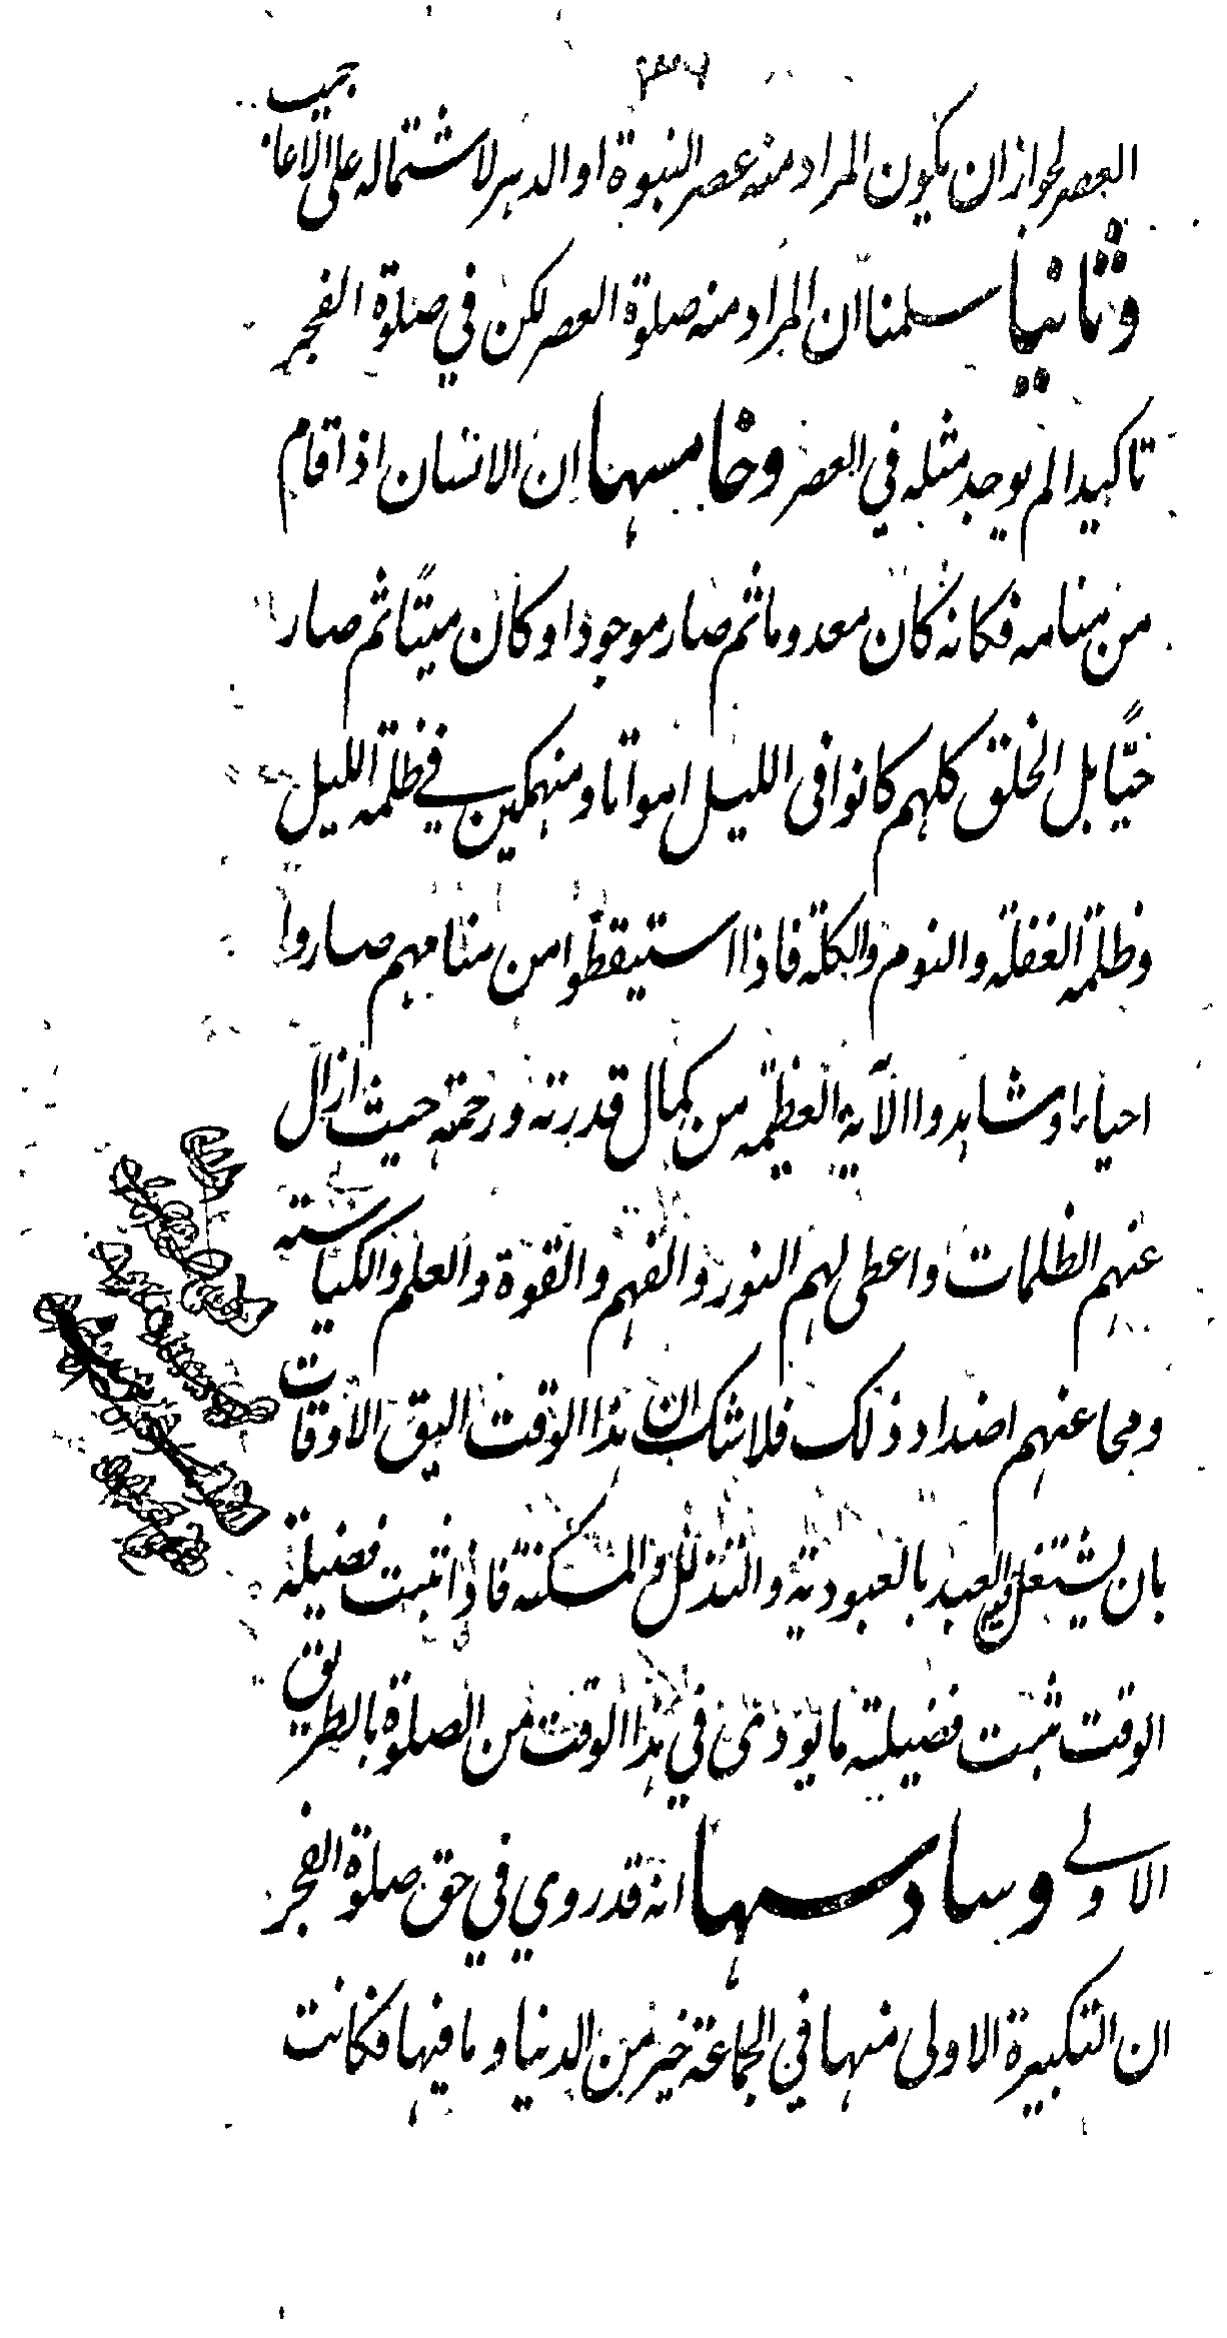 العصر لجواز ان يكون المراد منه عصر النبوة او الدهر لاشتماله على الاعاجيب
وثانيا سلمنا ان المراد منه صلوة العصر لكن في صلوة الفجر
تاكيدا لم يوجد مثله في العصر وخامسها ان الانسان اذا قام
من منامه فكانه كان معدوما ثم صار موجودا او كان ميتًا ثم صار
حيًّا بل الخلق كلهم كانوا فى الليل امواتا ومنهمكين في ظلمة الليل
وظلمة الغفلة والنوم والكلة فاذا استيقظوا من منامهم صاروا
احياء او شاهدوا الآية العظيمة من كمال قدرته ورحمته حيث ازال
عنهم الظلمات واعطى لهم النور والفهم والقوة والعلم والكياسته
ومحا عنهم اضداد ذلك فلا شك ان هذا الوقت اليق الاوقات
بان يشتغل فيه العبد بالعبودية والتذلل والمسكنة فاذا ثبت فضيلة
الوقت ثبت فضيلة ما يودى في هذا الوقت من الصلوة بالطريق
الاولى وسادسها انه قد روي في حق صلوة الفجر
ان التكبيرة الاولى منها في الجماعة خير من الدنيا وما فيها فكانت